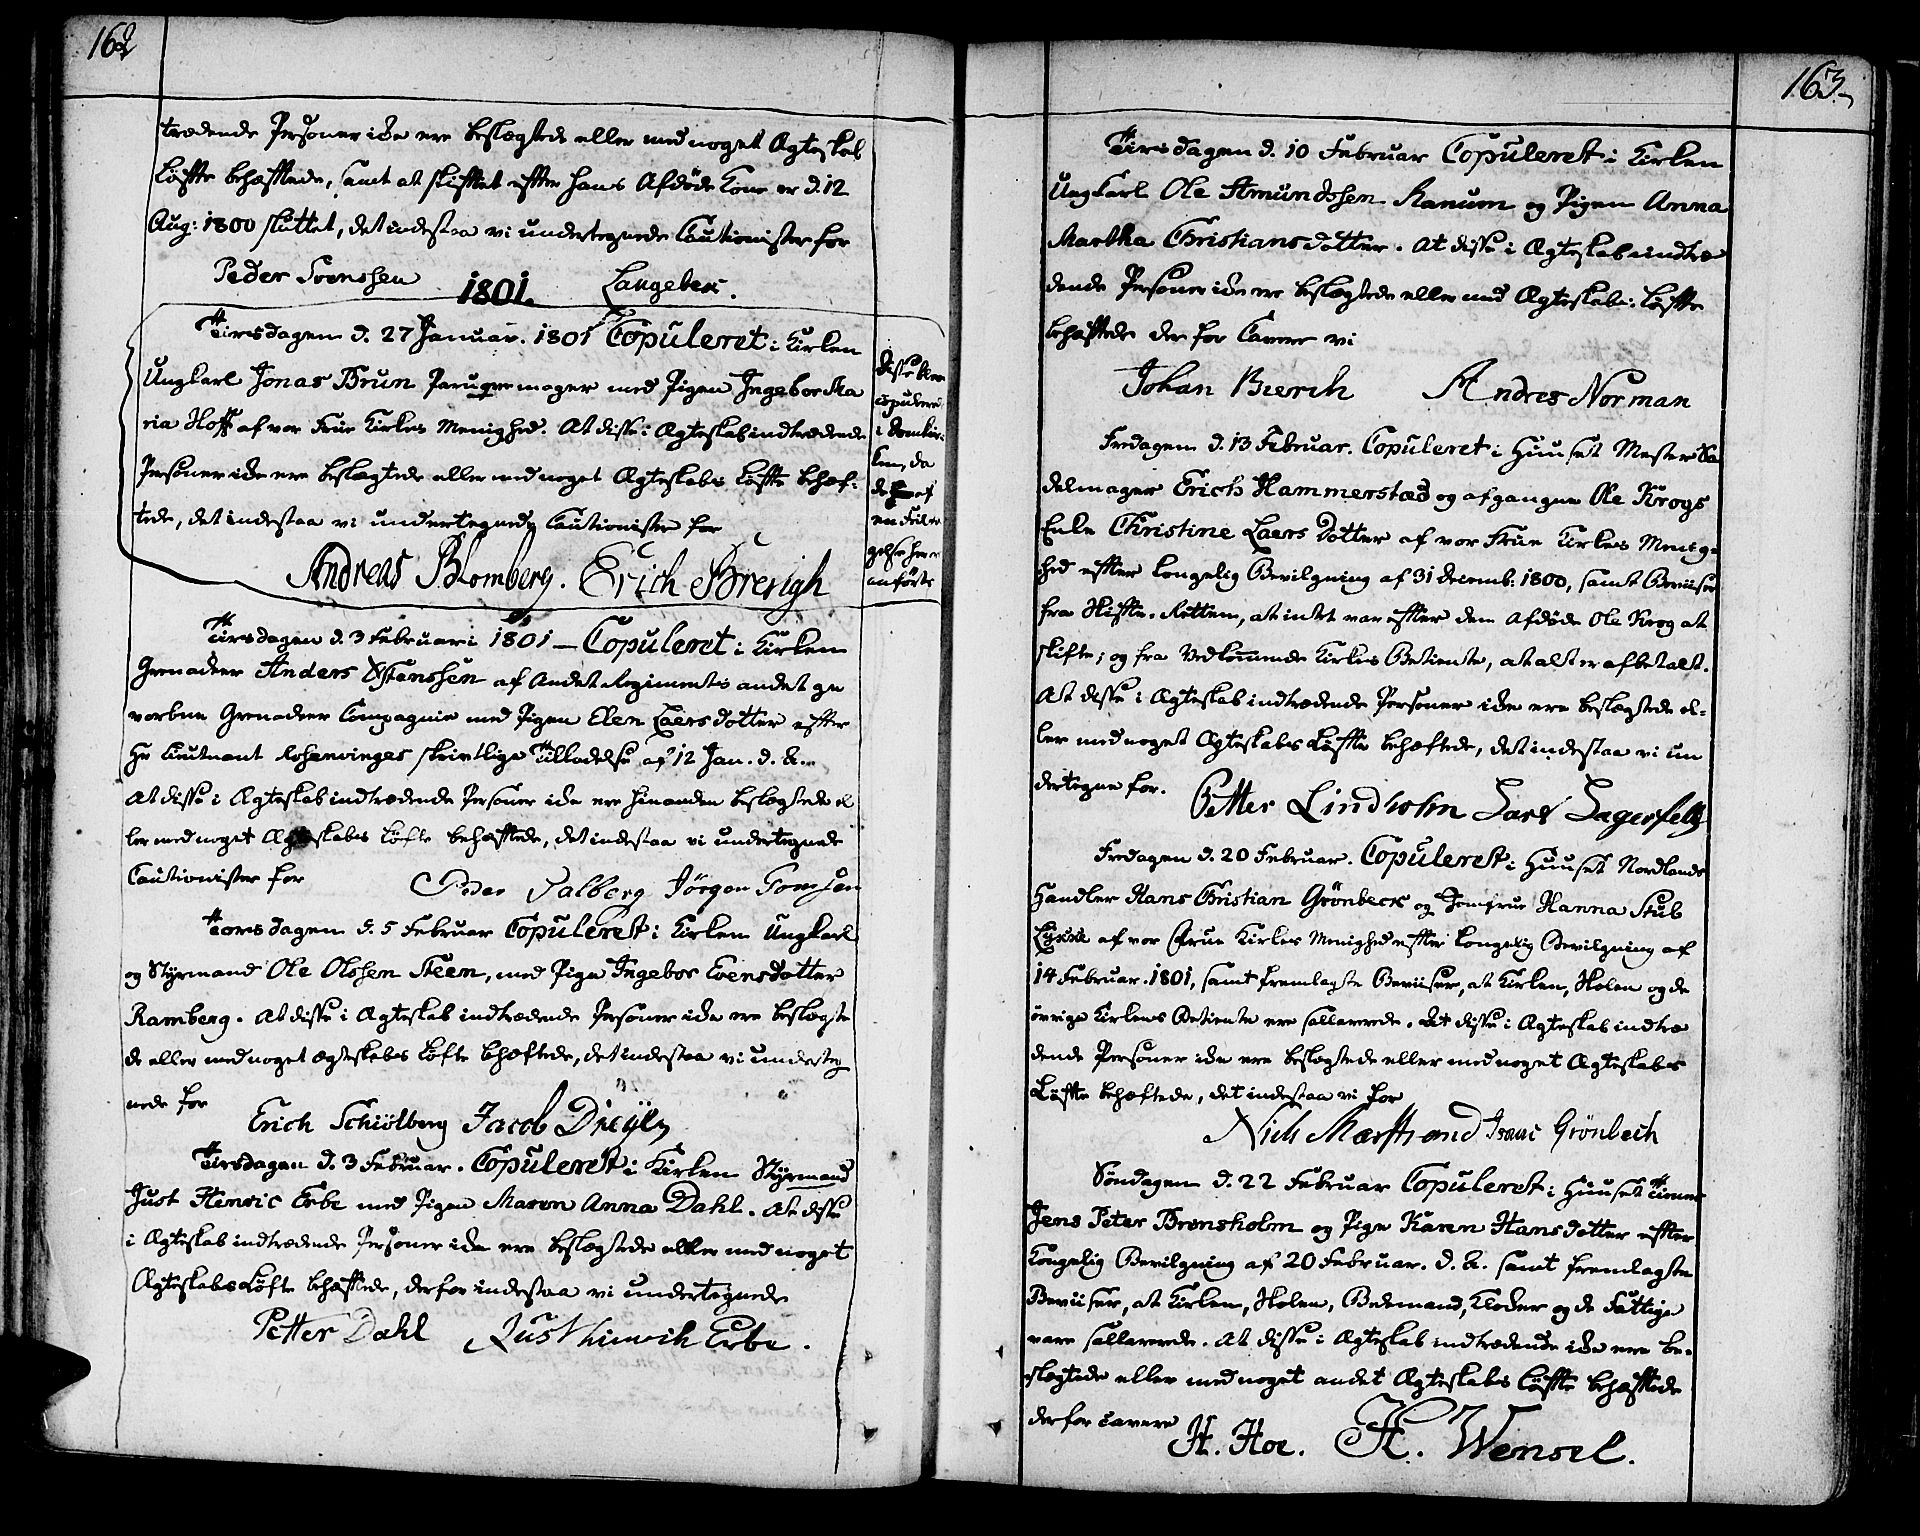 162
trædende Personer ikke ere beslægtede eller med noget Ægteskab
Løfte behæfftede, samt at skifftet effter hans Afdøde Kone er d. 12
Aug: 1800 sluttet, det indestaa vi undertegnede Cautionister for
Peder Svenssen Langebek.
1801.
Tirsdagen d. 27 Januar. 1801 Copuleret i Kirken
Ungkarl Jonas Brun Paruqvemager med Pigen Ingebor Ma
ria Hoff af vor Frue Kirkes Menighed. At disse i Ægteskab indtrædende
Personer ikke ere beslægtede eller med noget Ægteskabs Løffte behæf:
tede, det indestaa vi undertegnede Cautionister for
Andreas Blomberg. Erich Brerigh
Disse blev
copulered
i Domkir:
ken, da
de
en Feilta
gelse her er
anførte
Tirsdagen d. 3 Februari 1801 – Copuleret i Kirken
Grenadeer Anders Østenssen af Andet Regiments andet ge
vorbne Grenadeer Compagnie med Pigen Elen Laersdotter effter
Hr Lieutnant Rosenvinges skrivtlige Tilladelse af 12 Jan. d. A.
At disse i Ægteskab indtrædende Personer ikke ere hinanden beslægtede el
ler med noget Ægteskabs Løfte behæfftede, det indestaa vi undertegnede
Cautionister for
Peder Salberg Jörgen Tomsen
Torsdagen d. 5 Februar Copuleret i Kirken Ungkarl
og Styrmand Ole Olssen Steen, med Pige Ingebor Evensdotter
Ramberg. At disse i Ægteskab indtrædende Personer ikke ere beslægte
de eller med noget Ægteskabs Løfte behæftede, det indestaa vi underteg
nede for
Erich Schiölberg Jacob Dreyer
Tirsdagen d. 3 Februar. Copuleret i Kirken Styrmand
Just Henric Erbe med Pigen Maren Anna Dahl. At disse
i Ægteskab indtrædende Personer ikke ere beslægtede eller med noget
Ægteskabs Løfte behæfftede, derfor indestaa vi undertegnede
Petter Dahl Just hinrich Erbe.
163
Tirsdagen d. 10 Februar Copuleret i Kirken
Ungkarl Ole Amundssen Ranum og Pigen Anna
Martha Christiansdotter. At disse i Ægteskab indtræ
dende Personer ikke ere beslægtede eller med Ægteskabs: Løffte
behæftede der for Cavere vi
Johan Bierch Andres Norman
Fredagen d. 13 Februar. Copuleret i Huuset Mester Sa
delmager Erich Hammerstæd og afgangne Ole Krogs
Enke Christine Laers Dotter af vor Frue Kirkes Menig=
hed effter kongelig Bevilgning af 31 Decemb: 1800, samt Beviiser
fra Skiffte-Retten, at intet var effter den Afdøde Ole Krog at
skifte; og fra Vedkommende Kirkes Betiente, at alt er afbetalt.
At disse i Ægteskab indtrædende Personer ikke ere beslægtede el=
ler med noget Ægteskabs Løffte behæftede, det indestaa vi un
dertegne for.
Petter Lindholm Lars Lagerfelt
Fredagen d. 20 Februar. Copuleret i Huuset Nordlands
Handler Hans Christian Grönbeck og Jomfrue Hanna Stub
Lysse af vor Frue Kirkes Menighed effter kongelig Bevilgning af
14 Februar. 1801, samt fremlagte Beviiser, at Kirken, Skolen og de
øvrige Kirkens Betiente ere sallarerede. At disse i Ægteskab indtræ
dende Personer ikke ere beslægtede eller med noget Ægteskabs
Løffte behæftede, det indestaa vi for
Niels Marstrand Isaac Grönbech
Søndagen d. 22 Februar Copuleret i Huuset
Jens Peter Brønsholm og Pige Karen Hansdotter effter
Kongelig Bevilgning af 20 Februar. d. A. samt fremlagte
Beviiser, at Kirken, Skolen, Bedemand, Klokker og de Fattige
vare sallarerede. At disse i Ægteskab indtrædende ikke ere be=
slægtede eller med noget andet Ægteskabs Løffte behæfftede
derfor cavere
H. Hoe. H. Wensel.